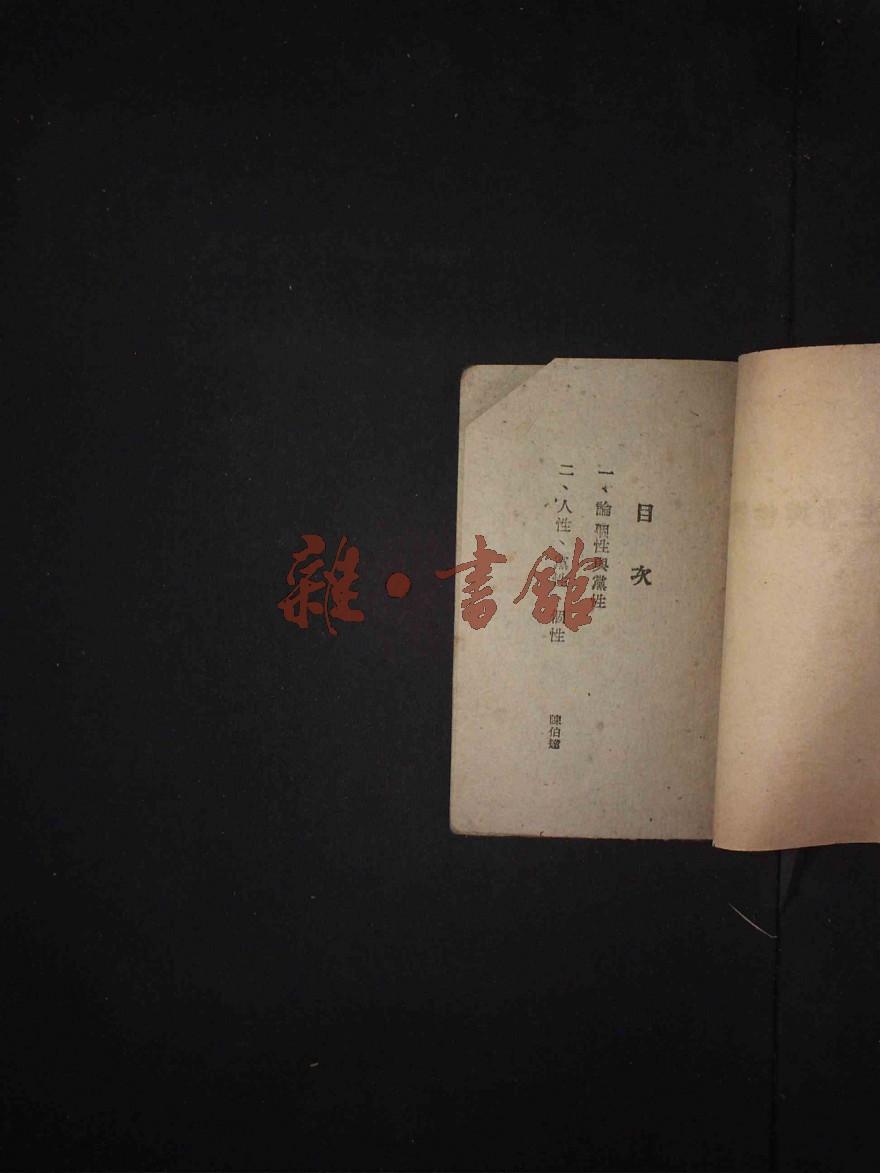 目次
一、論個性與黨性
二、人性、黨性、個性
陳伯達
雜·書館